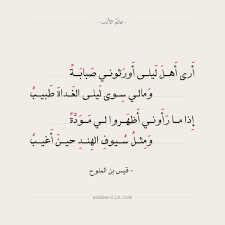 - عالم الأدب -
أَرى أَهلَ لَيلى أَورَثوني صَبابَةً
وَمالي سِوى لَيلى الغَداةَ طَبيبُ
إِذا ما رَأَوني أَظهَروا لي مَوَدَّةً
وَمِثلُ سُيوفِ الهِندِ حينَ أَغيبُ
- قيس بن الملوح -
adabworld.com